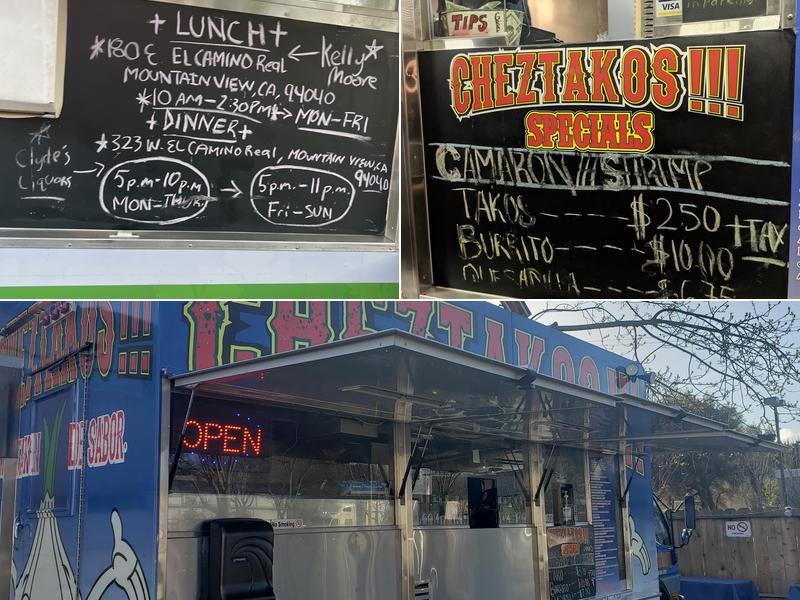 + LUNCH +
*180 E. EL CAMINO Real ← Kelly* Moore
MOUNTAIN VIEW, CA, 94040
*10 AM-2:30PM* → MON-FRI
+ DINNER +
*323 W. EL CAMINO Real, MOUNTAIN VIEW, CA 94040
* Clyde's Liquors →
5p.m-10p.m → 5p.m.-11p.m.
MON-THUR. Fri-SUN
TIPS
VISA
CHEZTAKOS!!!
SPECIALS
CAMARON /// SHRIMP
TAKOS---- $2.50 +TAX
BURRITO---- $10.00
CHEZTAKOS!!!
CHEZTAKOS!!!
OPEN
DE SABOR.
No Smoking
NO